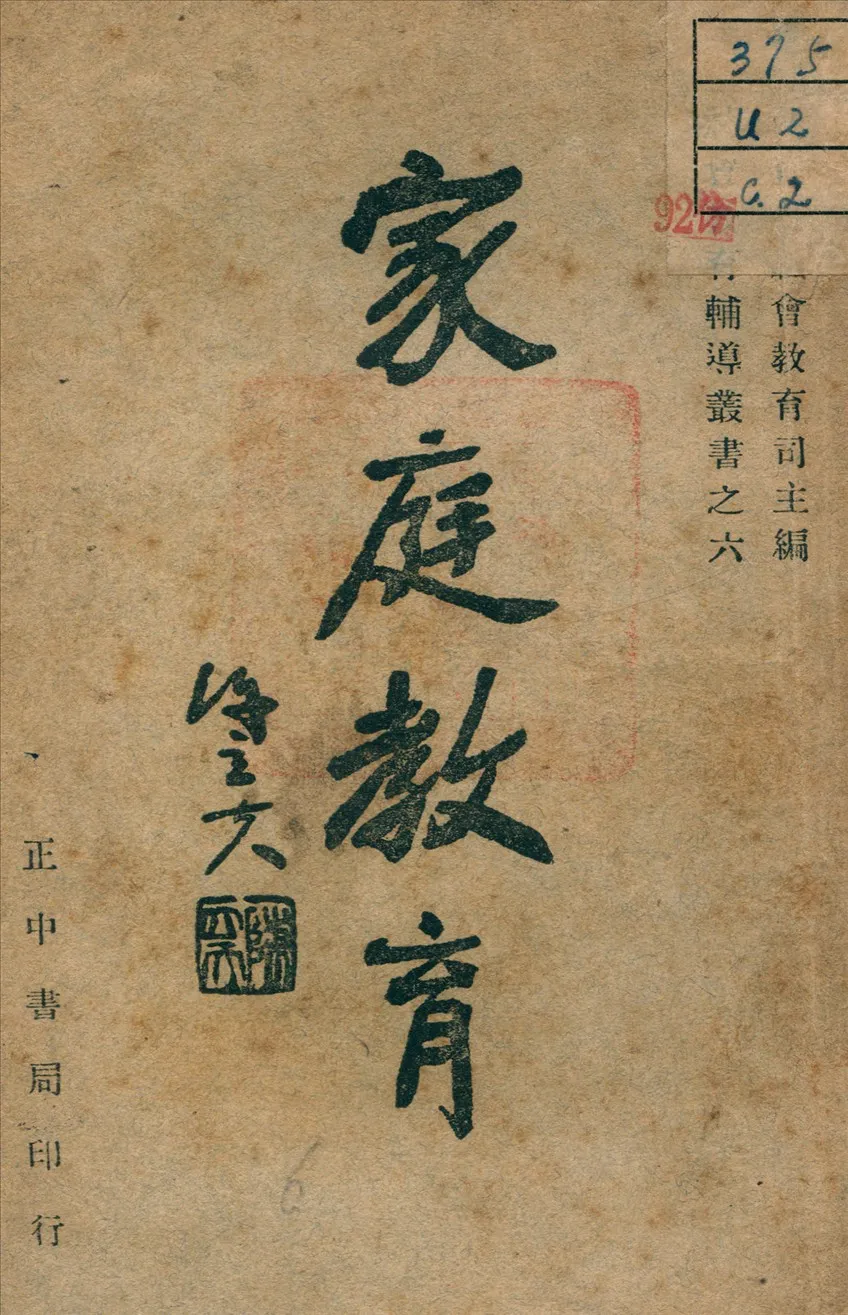 375
U2
C.2
92
會教育司主編
輔導叢書之六
家庭教育
陳立夫
正中書局印行
6